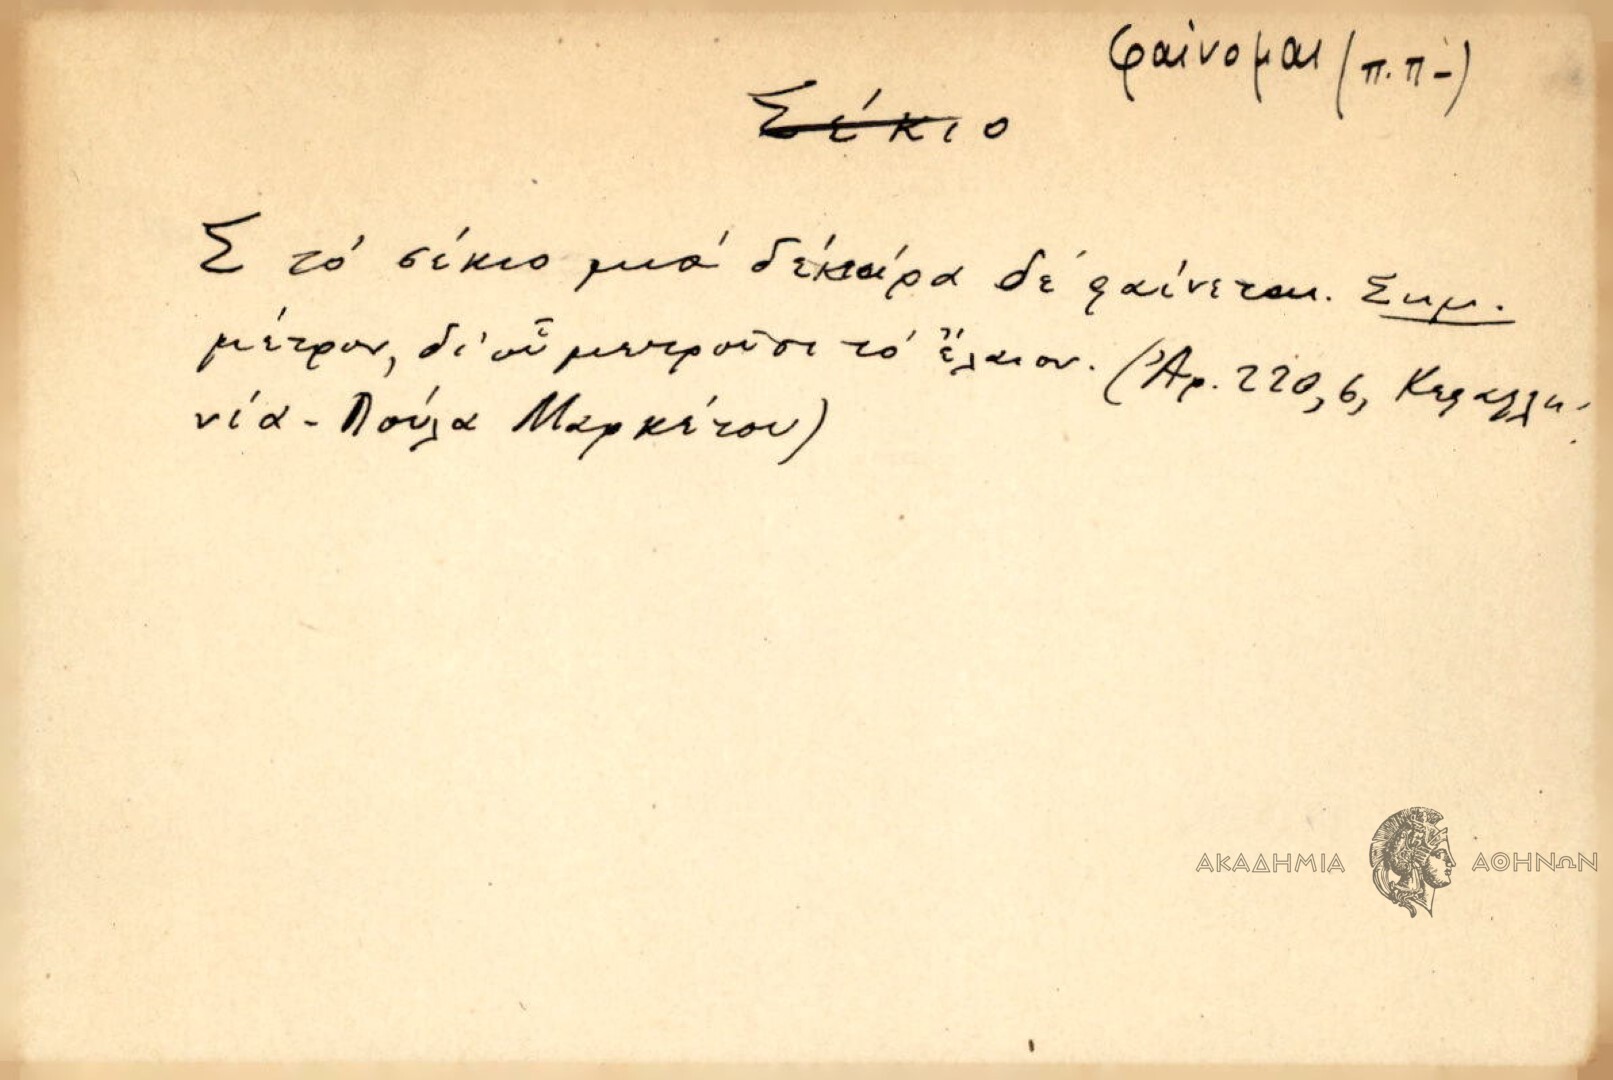 φαίνομαι (π.π-)
Σέκιο
Σ τό σέκιο μιά δεκάρα δέ φαίνεται. Σημ.
μέτρον, δι' οὗ μετροῦσι τό ἔλαιον. (Ἀρ. 220, 6, Κεφαλλη-
νία - Πούλα Μαρκέτου)
ΑΚΑΔΗΜΙΑ ΑΘΗΝΩΝ